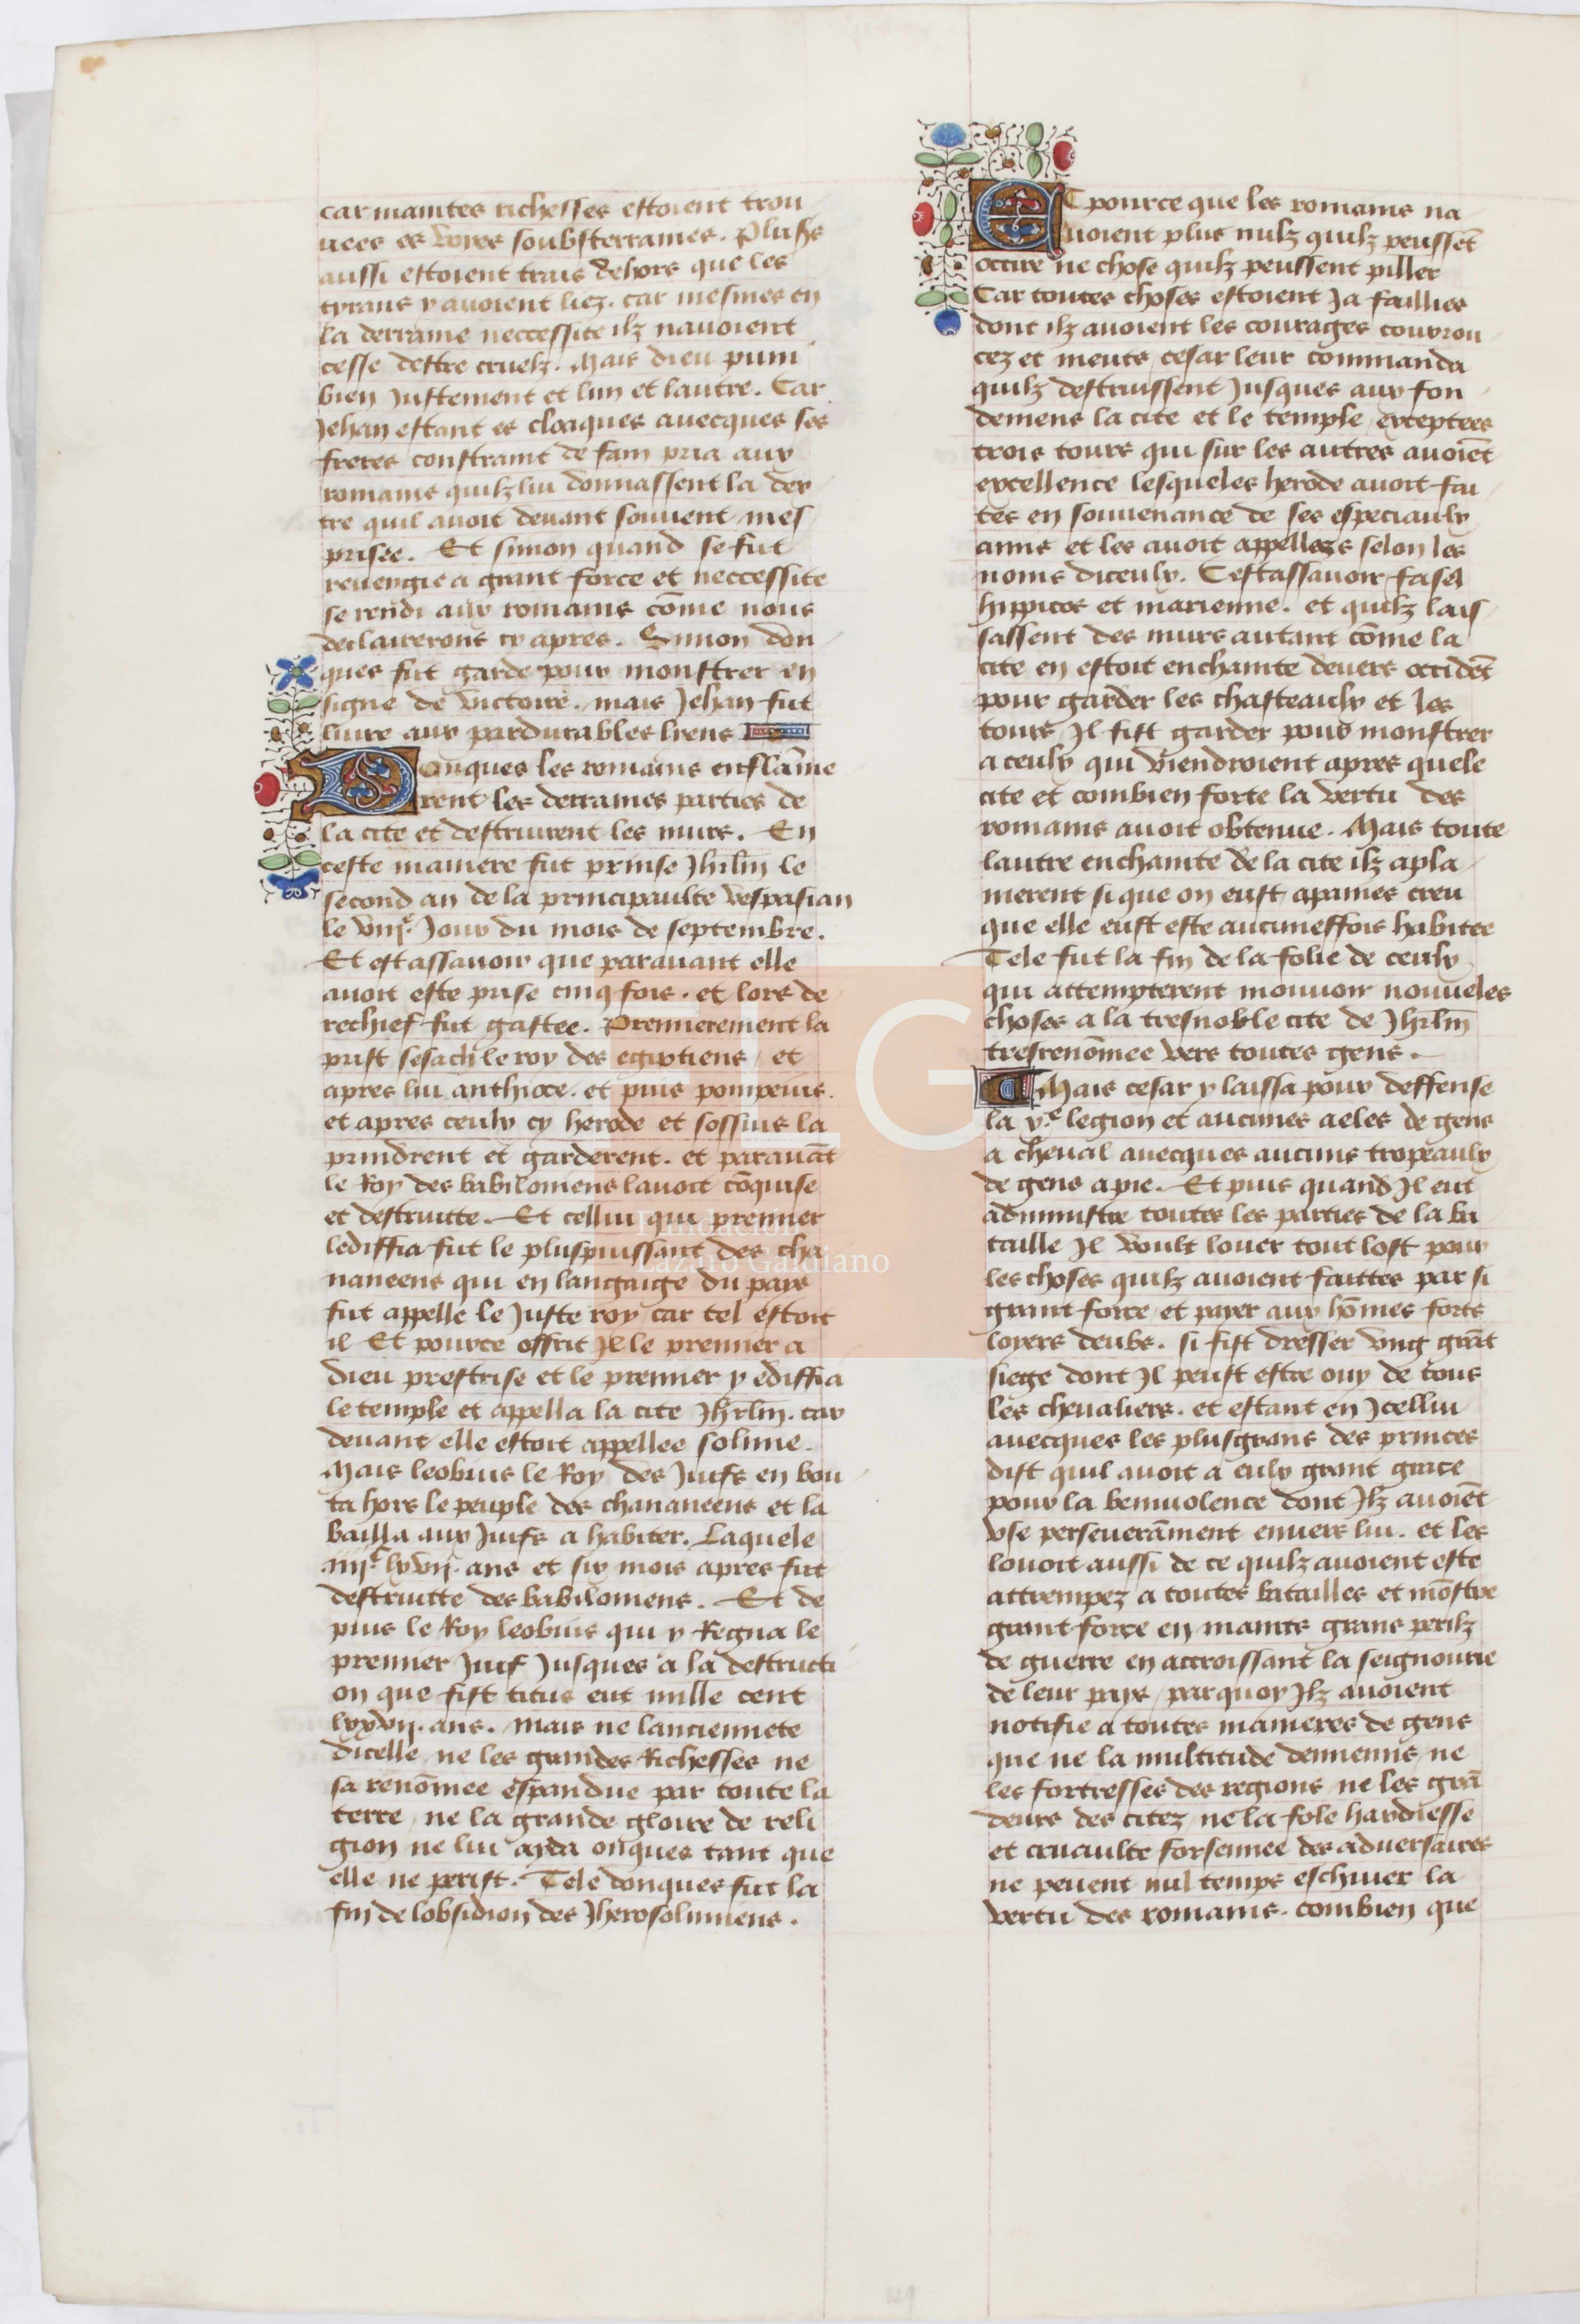 car maintes richesses estoient trou
uees es voyes soubsterraines. Plusrs
aussi estoient trais dehors que les
tyrans y auoient liez. car mesmes en
la derraine neccessite ilz nauoient
cesse destre cruelz. Mais dieu puni
bien Justement et lun et lautre. Car
Jehan estant es cloaques auecques ses
freres constraint de fain pria aux
romains quilz lui donnassent la dex
tre quil auoit deuant souuent mes
prisee. Et simon quand se fut
reuengie a grant force et neccessite
se rendi aux romains cōme nous
declairerons cy apres. Simon don
ques fut garde pour monstrer en
signe de victoire. mais Jehan fut
liure aux pardurables liens
Donques les romains enflāme
rent les derraines parties de
la cite et destruirent les murs. En
ceste maniere fut prinse Jhrlm̄ le
second an de la principaulte vespasian
le viij.e Jour du mois de septembre.
Et est assauoir que parauant elle
auoit este prise cinq fois. et lors de
rechief fut gastee. Premierement la
prist sesach le roy des egiptiens / et
apres lui anthioce. et puis pompeius.
et apres ceulx cy herode et sossius la
prindrent et garderent. et parauāt
le Roy des babiloniens lauoit cōquise
et destruitte. Et cellui qui premier
lediffia fut le pluspuissant des cha
naneens qui en langaige du pays
fut appelle le Juste roy / car tel estoit
il Et pource offrit Il le premier a
dieu prestrise et le premier y ediffia
le temple et appella la cite Jhrlm̄. car
deuant elle estoit appellee solime.
Mais leobius le Roy des Juifs en bou
ta hors le peuple des chananeens et la
bailla aux Juifs a habiter. Laquele
.iiij.c lxvij. ans et six mois apres fut
destruitte des babiloniens. Et de
puis le Roy leobius qui y Regna le
premier Juif Jusques a la destructi
on que fist titus eut mille cent
lxxvij. ans. Mais ne lanciennete
dicelle ne les grandes Richesses ne
sa renōmee espandue par toute la
terre / ne la grande gloire de reli
gion ne lui ayda onques tant que
elle ne perist. Tele donques fut la
fin de lobsidion des Jherosolimiens.
ET pource que les romains na
uoient plus nulz quilz peussēt
occire ne chose quilz peussent piller
Car toutes choses estoient Ja faillies
dont ilz auoient les courages couvrou
cez et meuts / cesar leur commanda
quilz destruissent Jusques aux fon
demens la cite et le temple / exceptees
trois tours qui sur les autres auoiēt
excellence lesqueles herode auoit fai
tes en souuenance de ses especiaulx
amis et les auoit appellees selon les
noms diceulx. Cestassauoir fasel
hippicos et marienne. et quilz lais
sassent des murs autant cōme la
cite en estoit enchainte deuers occidēt
pour garder les chasteaulx et les
tours / Il fist garder pour monstrer
a ceulx qui viendroient apres quele
cite et combien forte la vertu des
romains auoit obtenue. Mais toute
lautre enchainte de la cite ilz apla
nierent si que on eust apaines creu
que elle eust este aucuneffois habitee
Tele fut la fin de la folie de ceulx
qui attempterent mouuoir nouueles
choses a la tresnoble cite de Jhrlm̄
tresrenōmee vers toutes gens.
Mais cesar y laissa pour deffense
la x.e legion et aucunes aeles de gens
a cheual auecques aucuns tropeaulx
de gens a pie. Et puis quand Il eut
administre toutes les parties de la ba
taille Il voult louer tout lost pour
les choses quilz auoient faittes par si
grant force / et payer aux hōmes forts
loyers deubs. si fist dresser vng grāt
siege dont Il peust estre ouy de tous
les cheualiers. et estant en Jcellui
auecques les plusgrans des princes
dist quil auoit a eulx grant grace
pour la beniuolence dont Ilz auoiēt
vse perseuerāment enuers lui. et les
louoit aussi de ce quilz auoient este
attrempez a toutes batailles et mōstre
grant force en maints grans perilz
de guerre en accroissant la seignourie
de leur pays / par quoy Ilz auoient
notifie a toutes manieres de gens
que ne la multitude dennemis / ne
les fortresses des regions / ne les grā
deurs des citez / ne la fole hardiesse
et cruaulte forsennee des aduersaires
ne peuent nul temps eschiuer la
vertu des romains. combien que
Fundación
Lázaro Galdiano